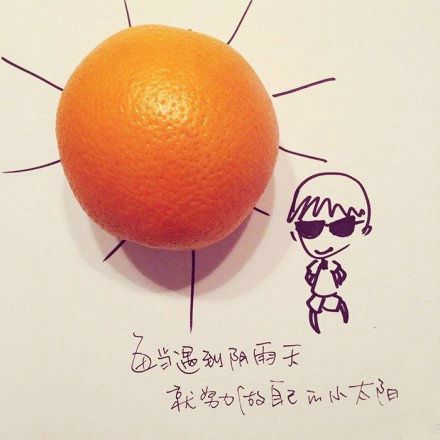 每当遇到阴雨天
就努力做自己的小太阳